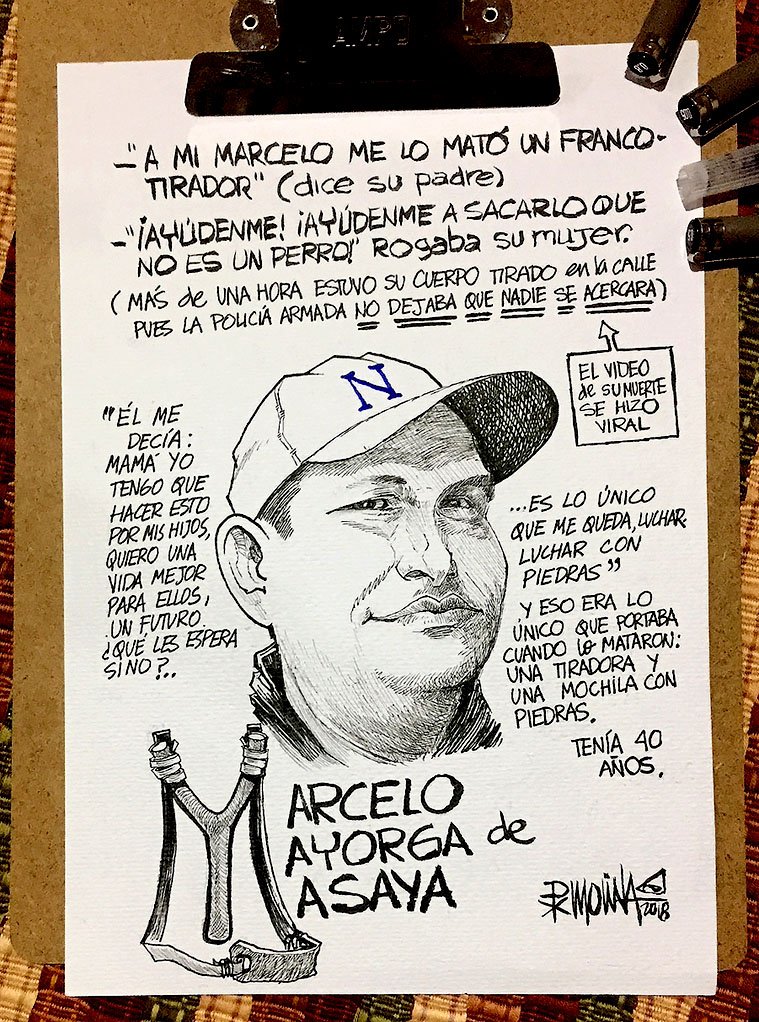 AMPO
—"A MI MARCELO ME LO MATÓ UN FRANCO-
TIRADOR" (dice su padre)
—"¡AYÚDENME! ¡AYÚDENME A SACARLO QUE
NO ES UN PERRO!" Rogaba su mujer.
(MÁS de UNA HORA ESTUVO SU CUERPO TIRADO en la CALLE
PUES LA POLICÍA ARMADA NO DEJABA QUE NADIE SE ACERCARA)
EL VIDEO
de SU MUERTE
SE HIZO
VIRAL
N
"ÉL ME
DECÍA:
MAMÁ YO
TENGO QUE
HACER ESTO
POR MIS HIJOS,
QUIERO UNA
VIDA MEJOR
PARA ELLOS,
UN FUTURO.
¿QUÉ LES ESPERA
SINO?..
...ES LO ÚNICO
QUE ME QUEDA, LUCHAR.
LUCHAR CON
PIEDRAS"
Y ESO ERA LO
ÚNICO QUE PORTABA
CUANDO LO MATARON:
UNA TIRADORA Y
UNA MOCHILA CON
PIEDRAS.
TENÍA 40
AÑOS.
ARCELO
AYORGA de
ASAYA
MOLINA
2018